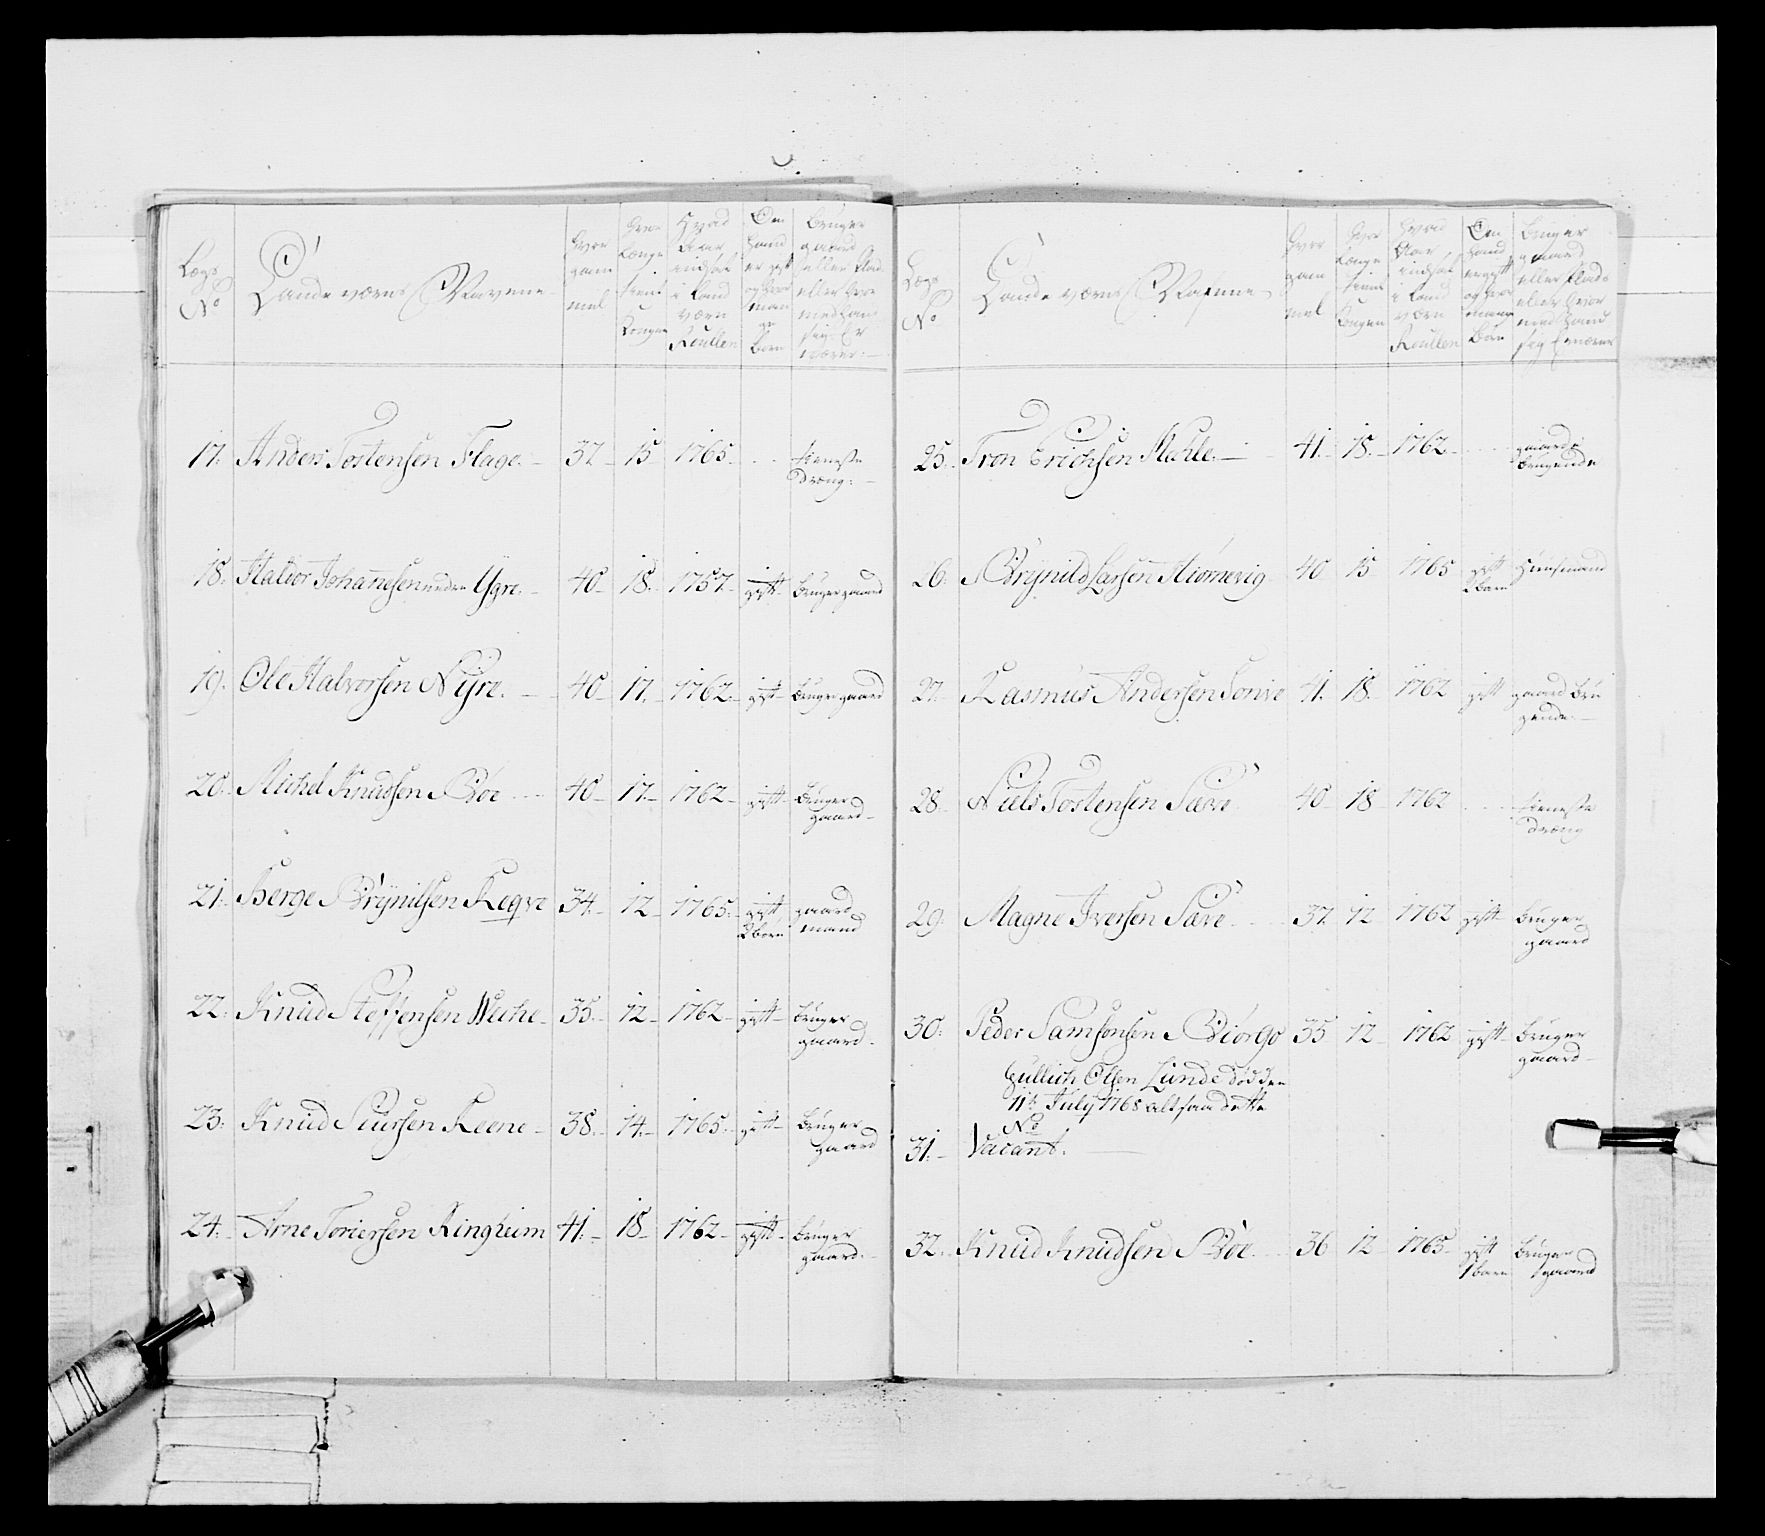 Lægs No
Lande værns Navnene
Hvor gam mel
Hvor længe tient Kongen
Hvad Aar indsat i Land værn Roullen
Om hand er gift og hvor man ge Børn
Bruger gaard eller Plads eller hvor med han sig Er nærer
17. Anders Tostensen Flage. 37 15 1765 tieneste dreng:
18. Haldor Johannesen neden Ygre. 40 18. 1757 gift bruger gaard
19. Ole Halvorsen Nyre. 40 17. 1762. gift bruger gaard
20. Michel Knudsen Böe 40 17. 1762 gift bruger gaard
21. Berge Brÿnilsen Reqve 34. 12 1765. gift 2 børn gaard mand
22. Knud Steffensen Weche 35. 12 1762 gift bruger gaard
23. Knud Siursen Reene 38. 14. 1765. gift bruger gaard
24. Arne Toriersen Ringheim 41. 18 1762 gift bruger gaard.
Lægs No
Lande værns Nafnene
Hvor gam mel
Hvor længe tient Kongen
Hvad Aar indsat i Land værn Roullen
Om hand er gift og hvor mange Børn
Bruger gaard eller Plads eller hvor med hand sig ernærer
25. Tron Erichsen Mehle. 41. 18. 1762 gaards brugende
26. Brÿnild Larsen Miømevig 40 15 1765 gift 2 børn Huusmand
27. Rasmus Andersen Sonve 41. 18. 1762 gift gaard bru gende.
28. Niels Tostensen Sæve 40 18 1762 tieneste dreng
29. Magne Iversen Sæve 37 12 1762 gift bruger gaard
30. Peder Samsonsen Biørgo 35 12 1762 gift bruger gaard
Gullich Olsen Lunde död den
11te July 1768 altsaa dette
No
31. Vacant.
32. Knud Knudsen Böe. 36 12 1765. gift 1 barn bruger gaard